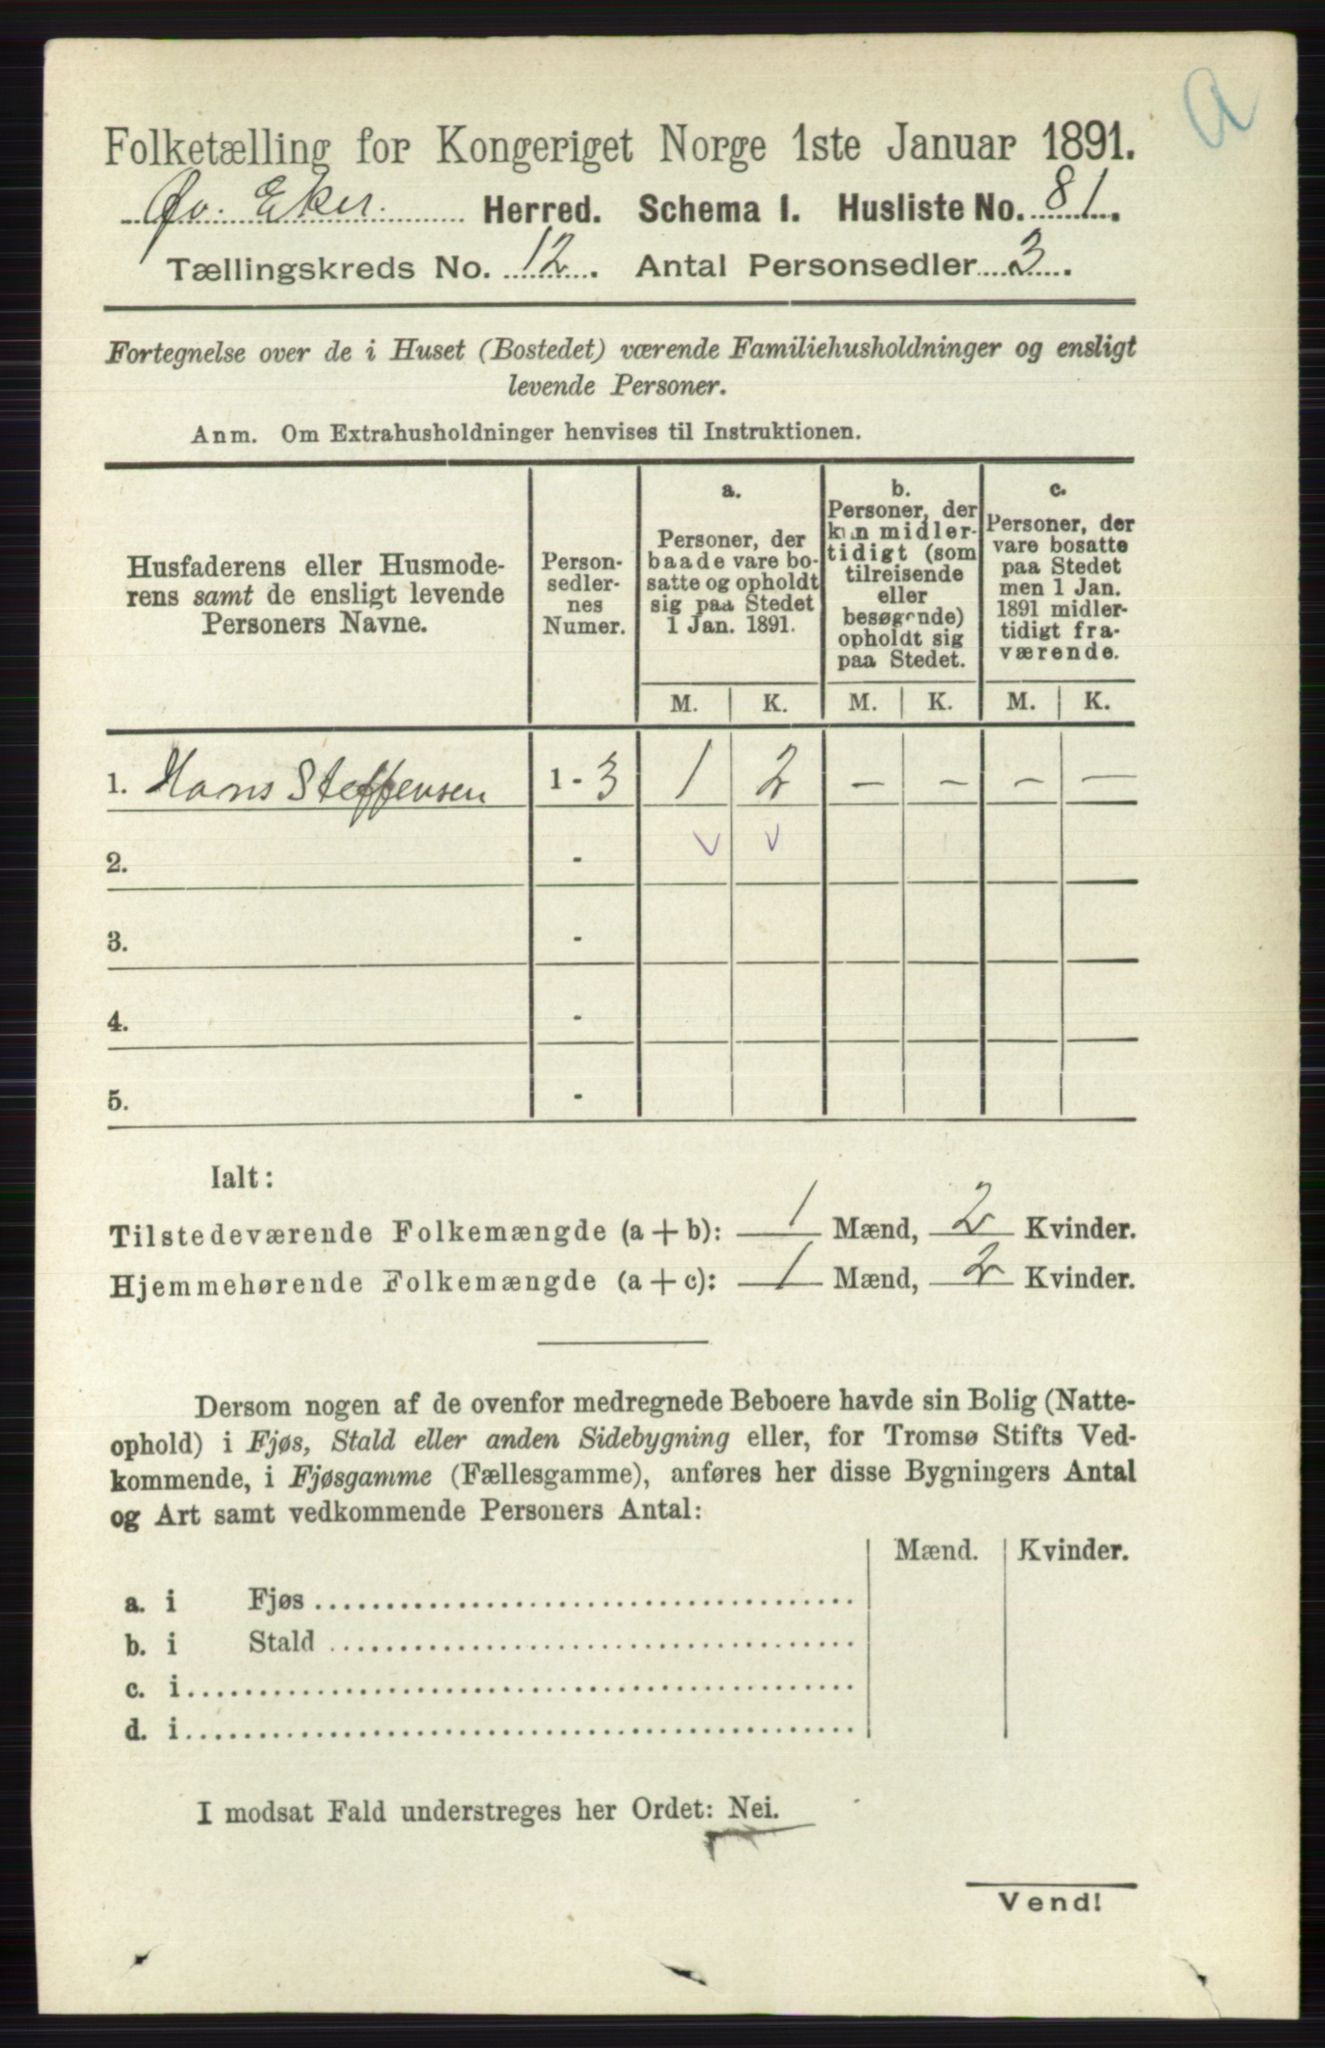 a
Folketælling for Kongeriget Norge 1ste Januar 1891.
Øv. Eker Herred. Schema I. Husliste No. 81.
Tællingskreds No. 12. Antal Personsedler 3.
Fortegnelse over de i Huset (Bostedet) værende Familiehusholdninger og ensligt
levende Personer.
Anm. Om Extrahusholdninger henvises til Instruktionen.
Husfaderens eller Husmode-
rens samt de ensligt levende
Personers Navne.
Person-
sedler-
nes
Numer.
a.
Personer, der
baade vare bo-
satte og opholdt
sig paa Stedet
1 Jan. 1891.
b.
Personer, der
kun midler-
tidigt (som
tilreisende
eller
besøgende)
opholdt sig
paa Stedet.
c.
Personer, der
vare bosatte
paa Stedet
men 1 Jan.
1891 midler-
tidigt fra-
værende.
M. K. M. K. M. K.
1. Hans Steffensen 1 - 3 1 2 - - - -
2. - v v
3. -
4. -
5. -
Ialt:
Tilstedeværende Folkemængde (a + b): 1 Mænd, 2 Kvinder.
Hjemmehørende Folkemængde (a + c): 1 Mænd, 2 Kvinder.
Dersom nogen af de ovenfor medregnede Beboere havde sin Bolig (Natte-
ophold) i Fjøs, Stald eller anden Sidebygning eller, for Tromsø Stifts Ved-
kommende, i Fjøsgamme (Fællesgamme), anføres her disse Bygningers Antal
og Art samt vedkommende Personers Antal:
Mænd. Kvinder.
a. i Fjøs
b. i Stald
c. i
d. i
I modsat Fald understreges her Ordet: Nei.
Vend!